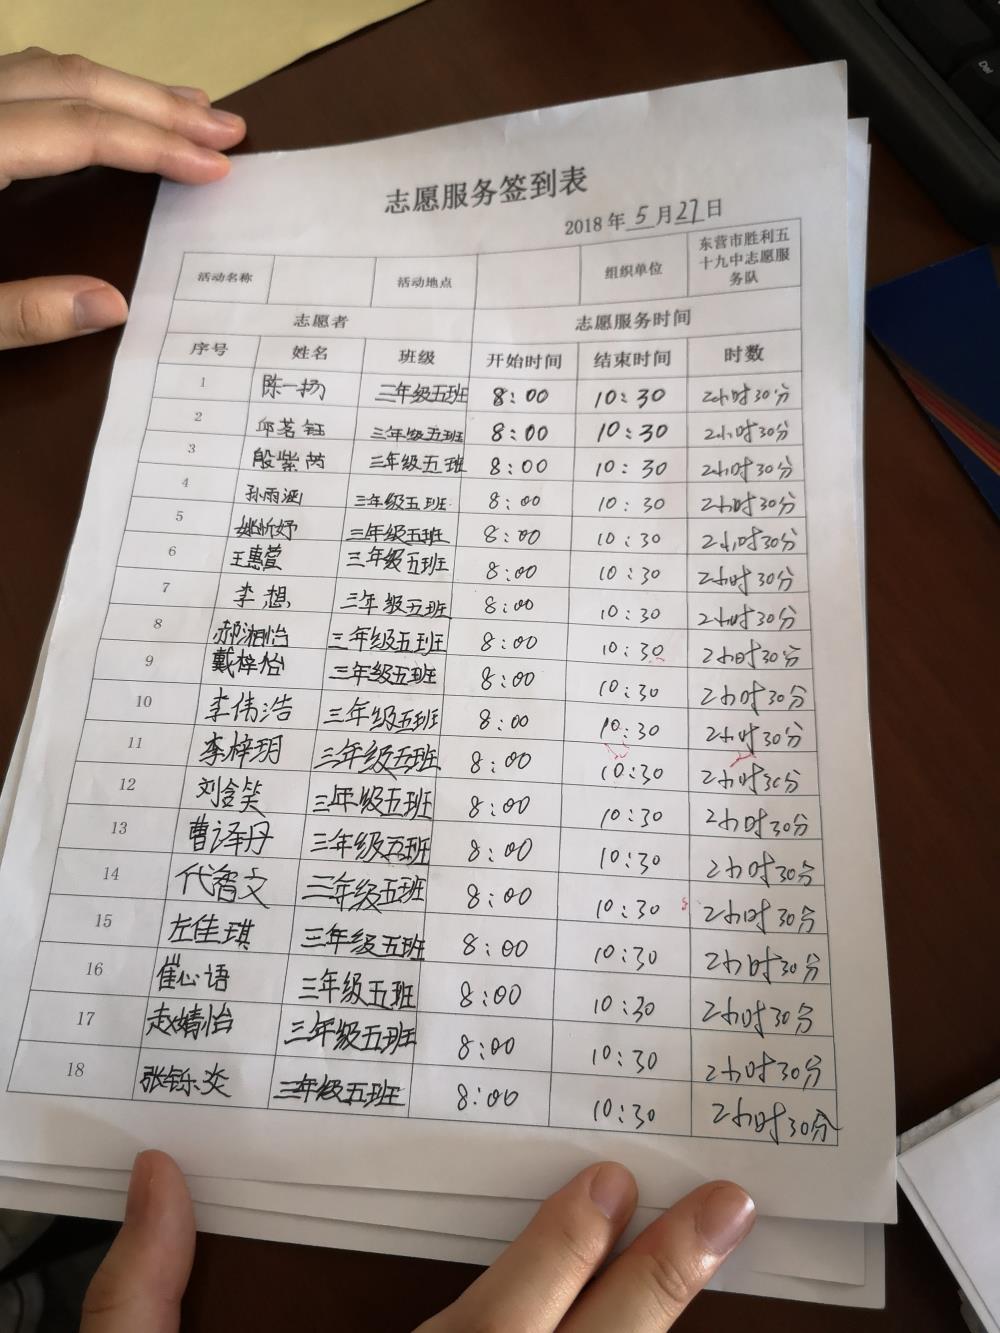 志愿服务签到表
2018 年 5 月 27 日
活动名称 活动地点 组织单位 东营市胜利五十九中志愿服务队
志愿者 志愿服务时间
序号 姓名 班级 开始时间 结束时间 时数
1 陈一扬 三年级五班 8:00 10:30 2小时30分
2 邱茗钰 三年级五班 8:00 10:30 2小时30分
3 殷紫芮 三年级五班 8:00 10:30 2小时30分
4 孙雨涵 三年级五班 8:00 10:30 2小时30分
5 姚忻妤 三年级五班 8:00 10:30 2小时30分
6 王惠萱 三年级五班 8:00 10:30 2小时30分
7 李想 三年级五班 8:00 10:30 2小时30分
8 郝湘怡 三年级五班 8:00 10:30 2小时30分
9 戴梓怡 三年级五班 8:00 10:30 2小时30分
10 李伟浩 三年级五班 8:00 10:30 2小时30分
11 李梓玥 三年级五班 8:00 10:30 2小时30分
12 三年级五班 8:00 10:30 2小时30分
13 曹译丹 三年级五班 8:00 10:30 2小时30分
14 代智文 三年级五班 8:00 10:30 2小时30分
15 左佳琪 三年级五班 8:00 10:30 2小时30分
16 崔心语 三年级五班 8:00 10:30 2小时30分
17 赵婧怡 三年级五班 8:00 10:30 2小时30分
18 张铄炎 三年级五班 8:00 10:30 2小时30分
Del